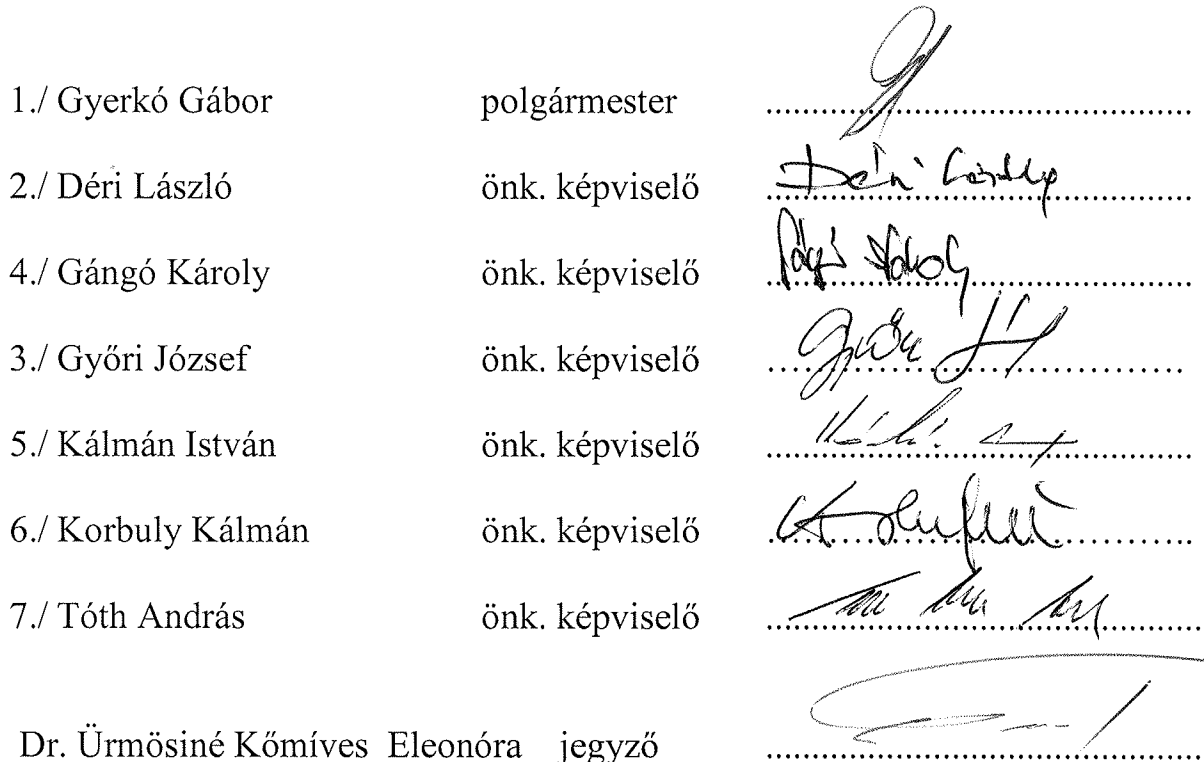 1./ Gyerkó Gábor polgármester ........................................
2./ Déri László önk. képviselő Déri László
4./ Gángó Károly önk. képviselő Gángó Károly
3./ Győri József önk. képviselő Győri
5./ Kálmán István önk. képviselő ........................................
6./ Korbuly Kálmán önk. képviselő ........................................
7./ Tóth András önk. képviselő ........................................
Dr. Ürmösiné Kőmíves Eleonóra jegyző ........................................